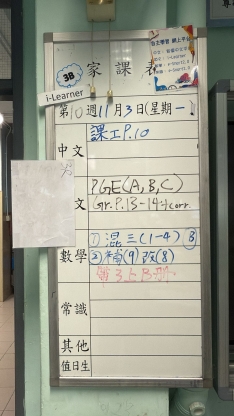 3B
家課表
i-Learner
自主學習 網上平台
第10週11月3日(星期一)
課工P.10
中文
PGE(A,B,C)
文
Gr.P.13-14+corr.
① 混三(1-4) Ⓑ
數學
②補(9)改(8)
帶3上B冊
常識
其他
值日生